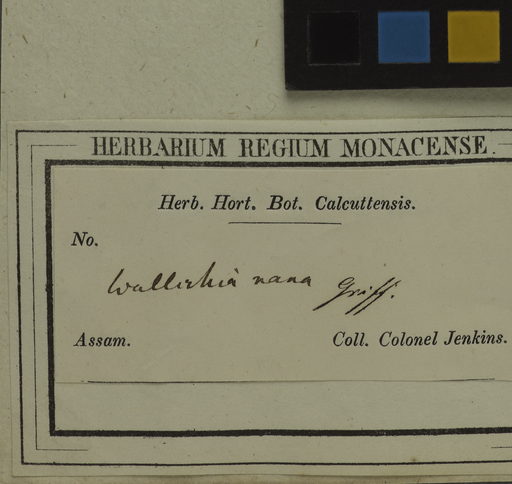 HERBARIUM REGIUM MONACENSE.
Herb. Hort. Bot. Calcuttensis.
No.
Wallichia nana Griff.
Assam. Coll. Colonel Jenkins.